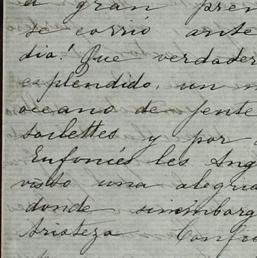 a gran pren
se corrió ante
dia! Que verdader
esplendido, un m
oceano de jente
toilettes y por
les Ang
visto una alegra
donde sinembarg
tristeza Confu